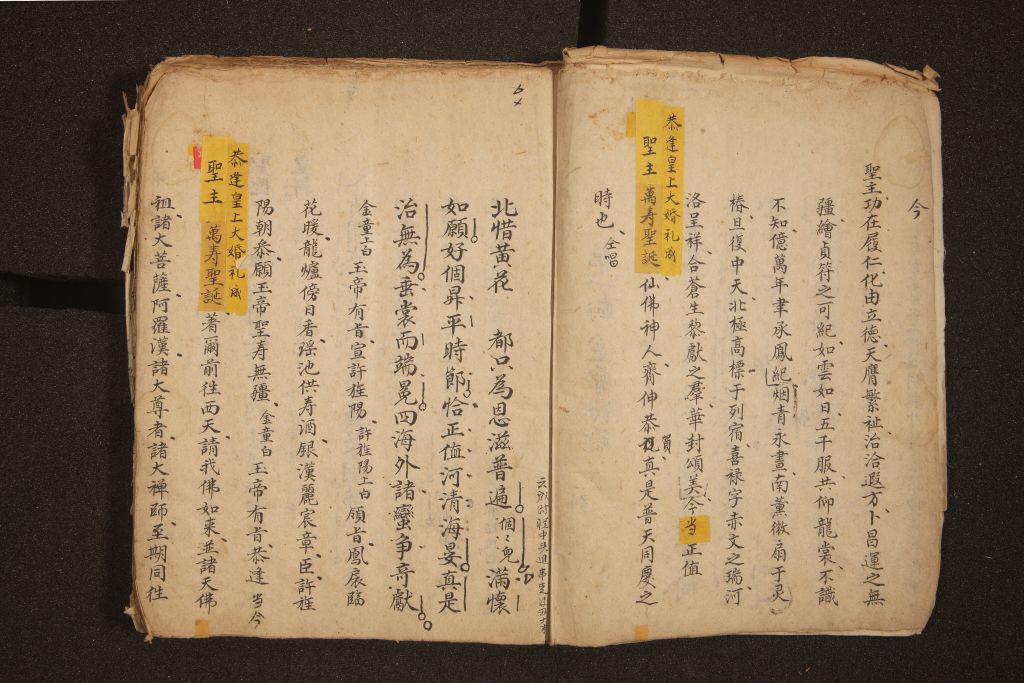 今
聖主功在履仁化由立德天膺繁祉治洽遐方卜昌運之無
疆繪貞符之可紀如雲如日五千服共仰龍裳不識
不知億萬年聿承鳳紀烟青永晝南薰微扇于灵
椿旦復中天北極高標于列宿喜祿字赤文之瑞河
洛呈祥合蒼生黎獻之羣華封頌美今当正值
恭逢皇上大婚礼成
聖主萬寿聖誕仙佛神人齊伸恭賀真是普天同慶之
時也仝唱
北惜黄花 都只為恩滋普遍個〻兒滿懷
如願好個昇平時節恰正值河清海晏真是
治無為垂裳而端冕四海外諸蠻争奇獻
金童上白玉帝有旨宣許旌陽許旌陽上白領旨鳳扆臨
花暖龍爐傍日香瑶池供寿酒銀漢麗宸章臣許旌
陽朝叅願玉帝聖寿無疆金童白玉帝有旨恭逢当今
恭逢皇上大婚礼成
聖主萬寿聖誕著爾前往西天請我佛如来並諸天佛
祖諸大菩薩阿羅漢諸大尊者諸大禅師至期同往